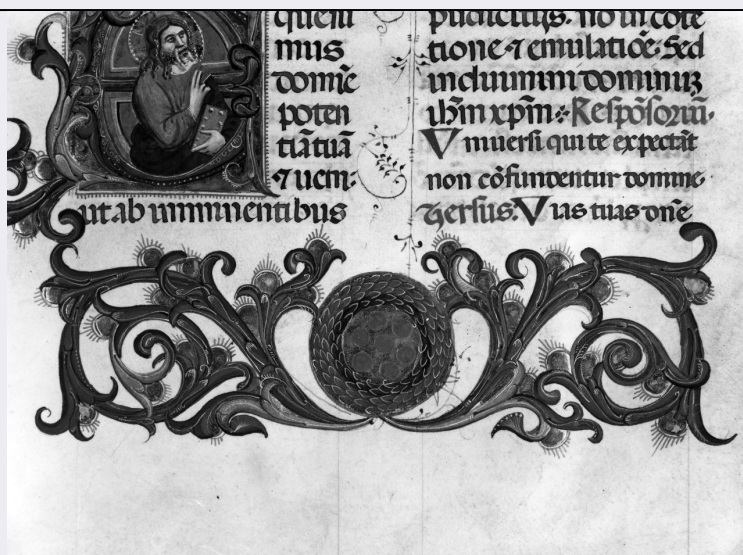 quesu
mus
domīe
poten
tiā tuā
⁊ ueni:
ut ab imminentibus
pudicitijs. nō in cōtē
tione ⁊ emulatiōe. Sed
induimini dominuȝ
ihm xpm. Respōsoriū.
Vniuersi qui te expectāt
non cōfundentur domine.
Versus. Vias tuas dn̄e